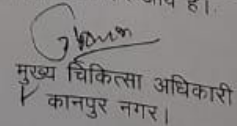 मुख्य चिकित्सा अधिकारी
कानपुर नगर।